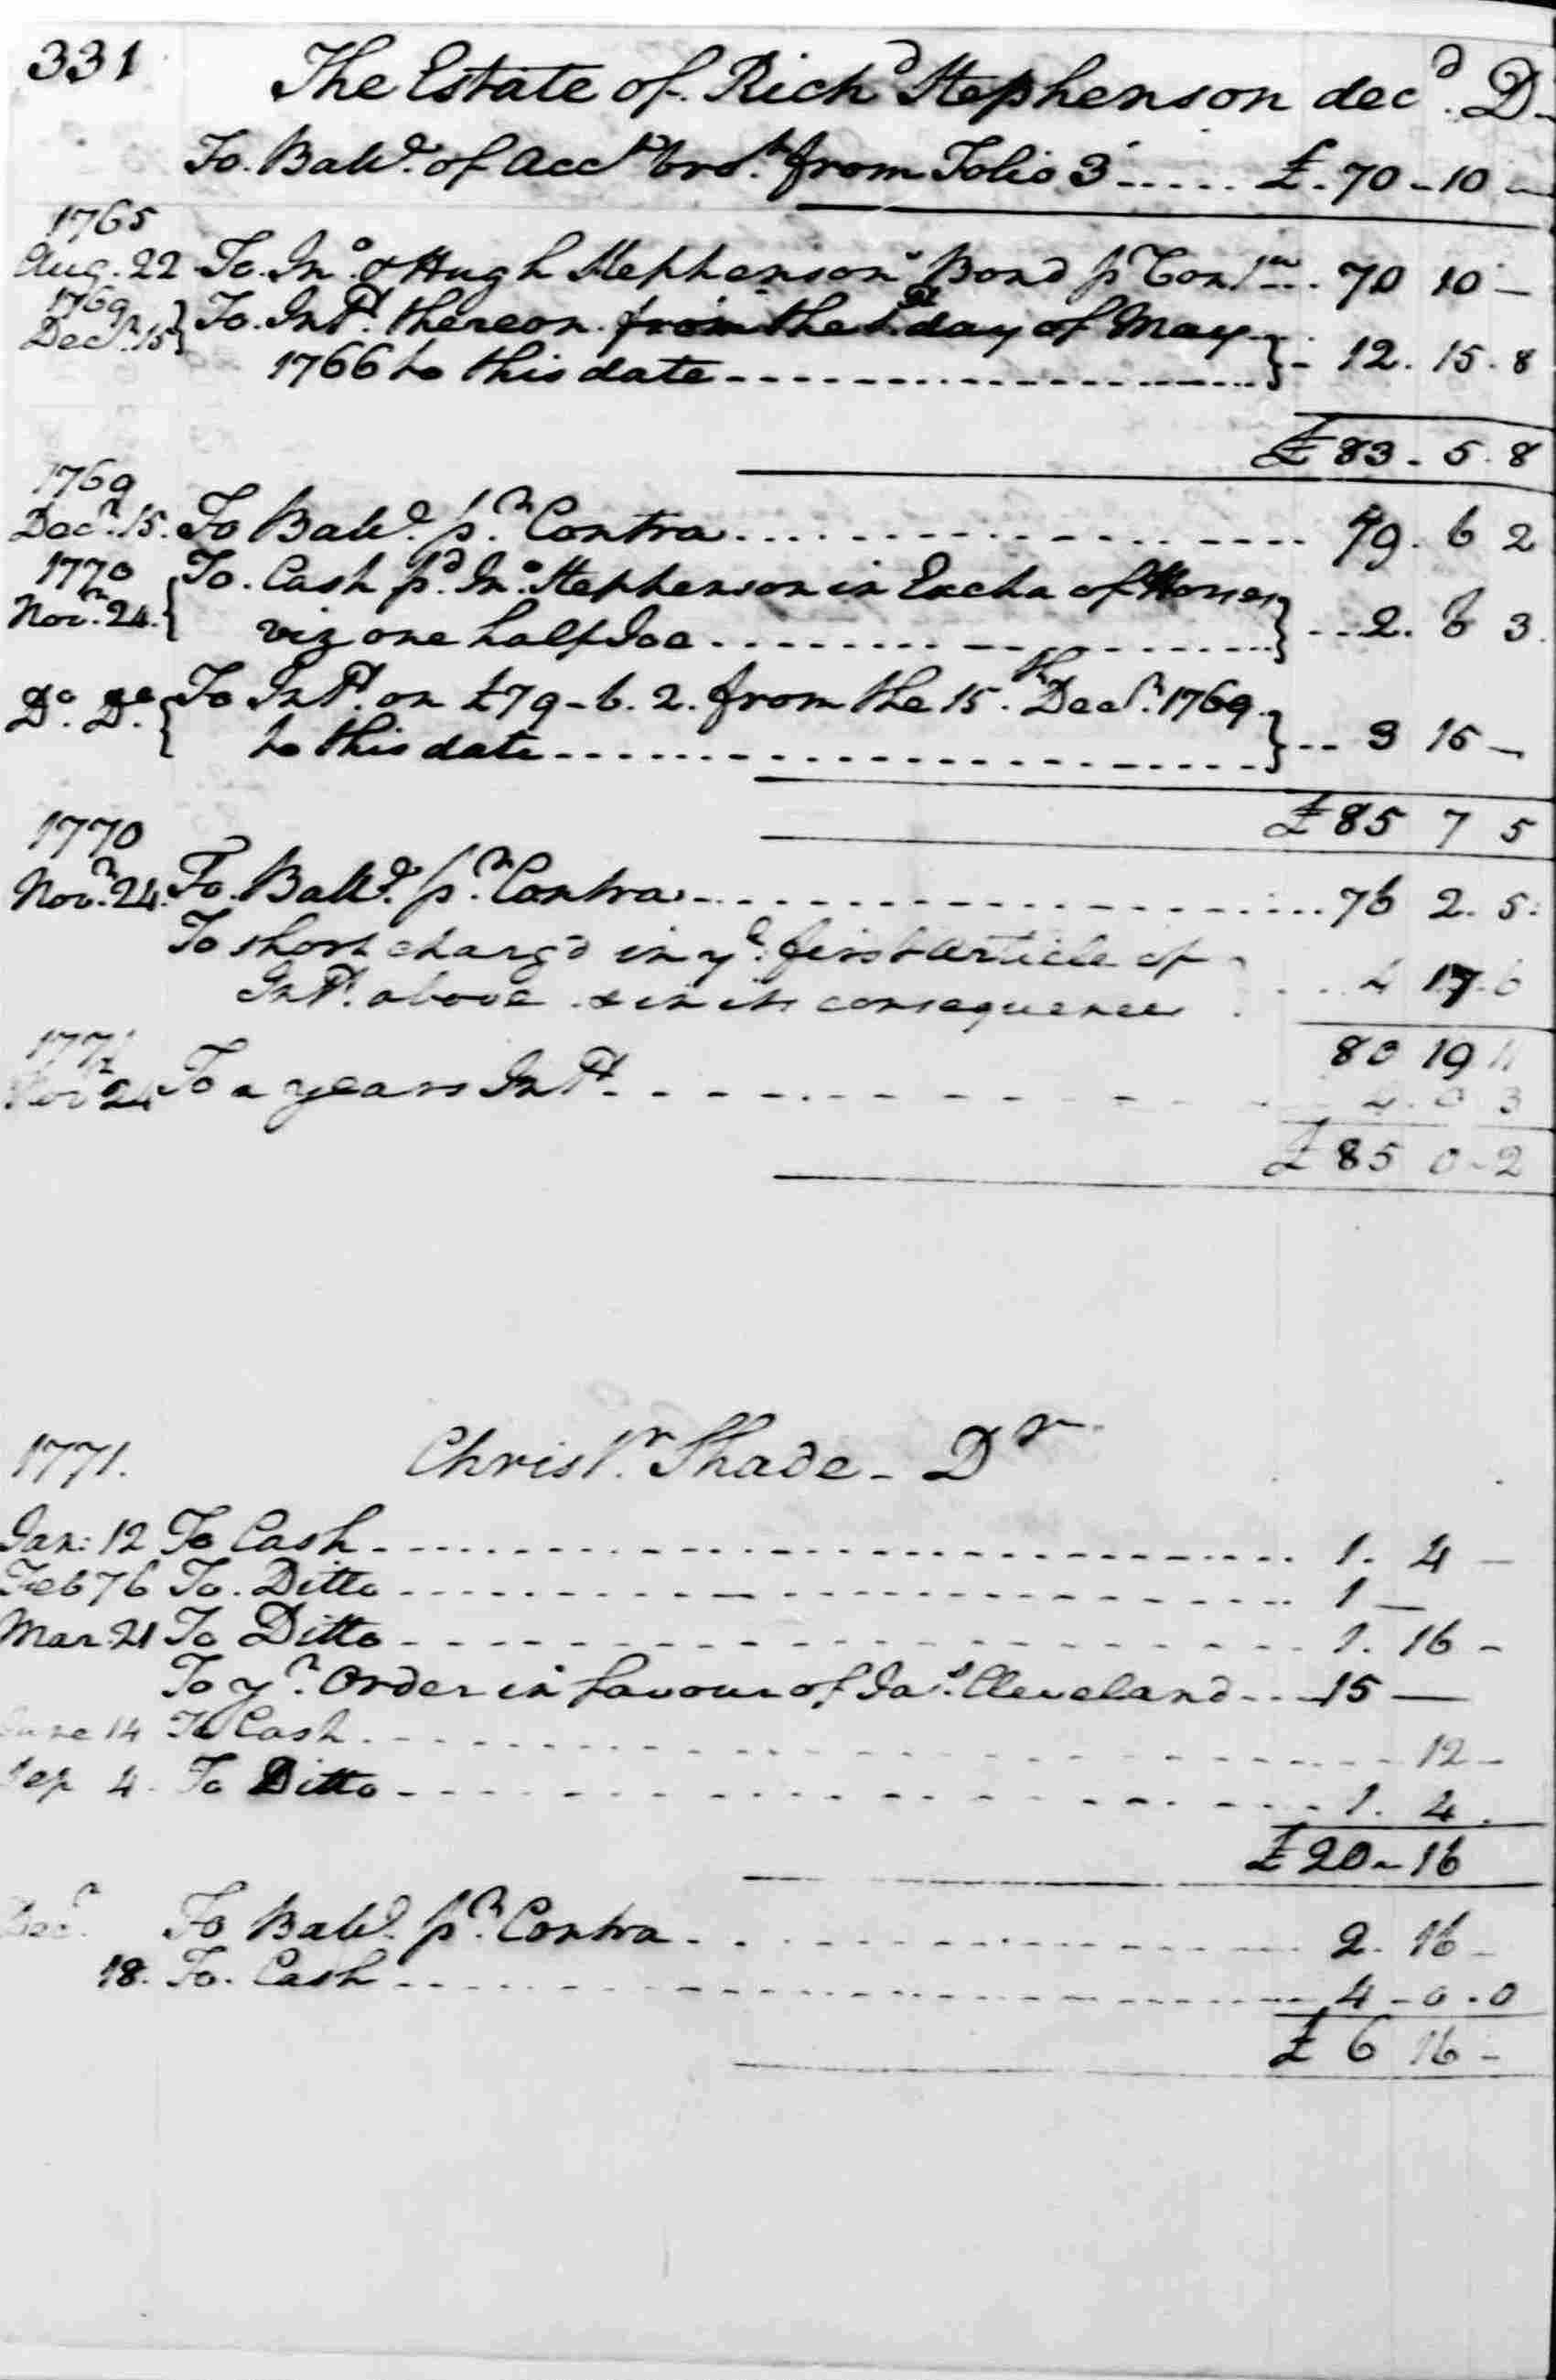 331 The Estate of Rich^d Stephenson dec^d. D
To Ball^e. of Acc^t. bro^t. from Folio 3 ...... £. 70 - 10 -
1765
Aug. 22 To Jn^o. & Hugh Stephenson^s Bond p^r Cont^a ... 70 10 -
1769
Dec^r. 15 } To Int^t. thereon from the 1^st day of May
1766 to this date - - - - - - } - 12. 15. 8
£ 83 - 5. 8
1769
Dec^r. 15. To Ball^e. p^r. Contra - - - - - - 79. 6 2
1770
Nov^r. 24. { To Cash p^d. Jn^o. Stephenson in Excha of Horses
viz one half Joe - - - - - - } - - 2. 6 3.
D^o. D^o. { To Int^t. on £79-6.2. from the 15^th. Dec^r. 1769
to this date - - - - - - } - - 3 15 -
£ 85 7 5
1770
Nov^r. 24. To Ball^e. p^r. Contra - - - - - - 76 2. 5.
To short charg'd in y^e. first article of
Int^t. above & in its consequences . . . 4 17. 6
80 19 11
1771
Nov^r 24 To a years Int^t. - - - - - - 4. 0 3
£ 85 0 - 2
1771. Christ^r. Shade - D^r
Jan: 12 To Cash - - - - - - 1. 4 -
Feb^y 6 To. Ditto - - - - - - 1 -
Mar. 21 To Ditto - - - - - - 1. 16 -
To y^r. Order in favour of Ja^s. Cleveland - - 15 -
June 14 To Cash - - - - - - 12 -
Sep 4. To Ditto - - - - - - 1. 4.
£ 20 - 16
Dec^r. To Ball^e. p^r. Contra - - - - - - 2. 16 -
18. To. Cash - - - - - - 4 - 0 . 0
£ 6 16 -